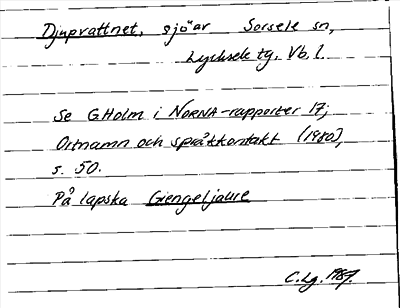 Djupvattnet, sjöar Sorsele sn,
Lycksele tg. Vb. l.
Se G Holm i NORNA-rapporter 17;
Ortnamn och språkkontakt (1980),
s. 50.
På lapska Gengeljaure
C. Lg. 1987.